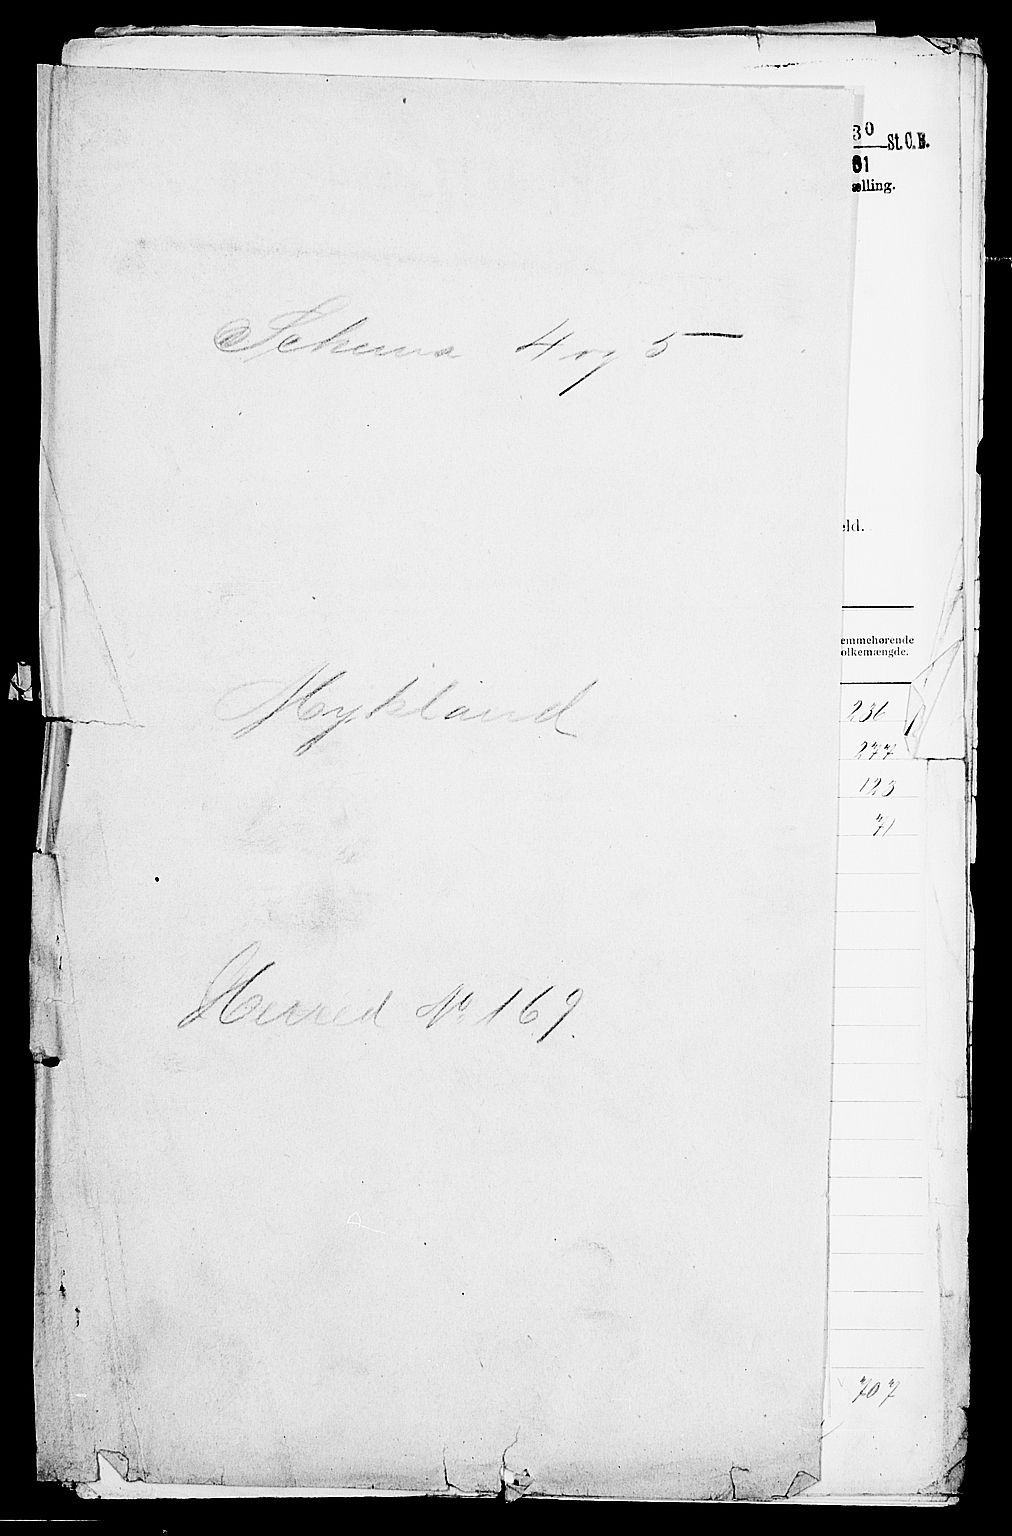 30
St. C. B.
01
ælling.
Schema 4 og 5
eld.
emmehørende
olkemængde.
Mykland
236
277
123
71
Herred No 169.
707